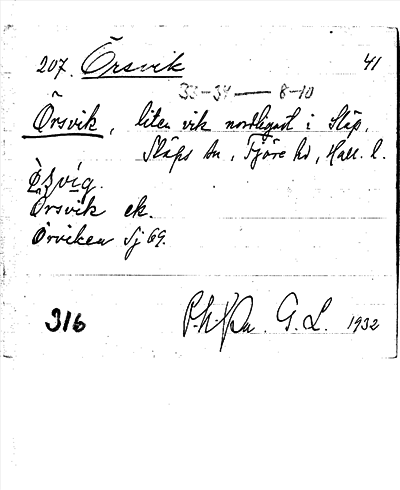 207. Örsvik 41
33-34 — 8-10
Örsvik, liten vik nordligast i Släp,
Släps sn, Fjäre hd, Hall. l.
Örsvik ek.
Örviken Sj 69.
316 G. L. 1932